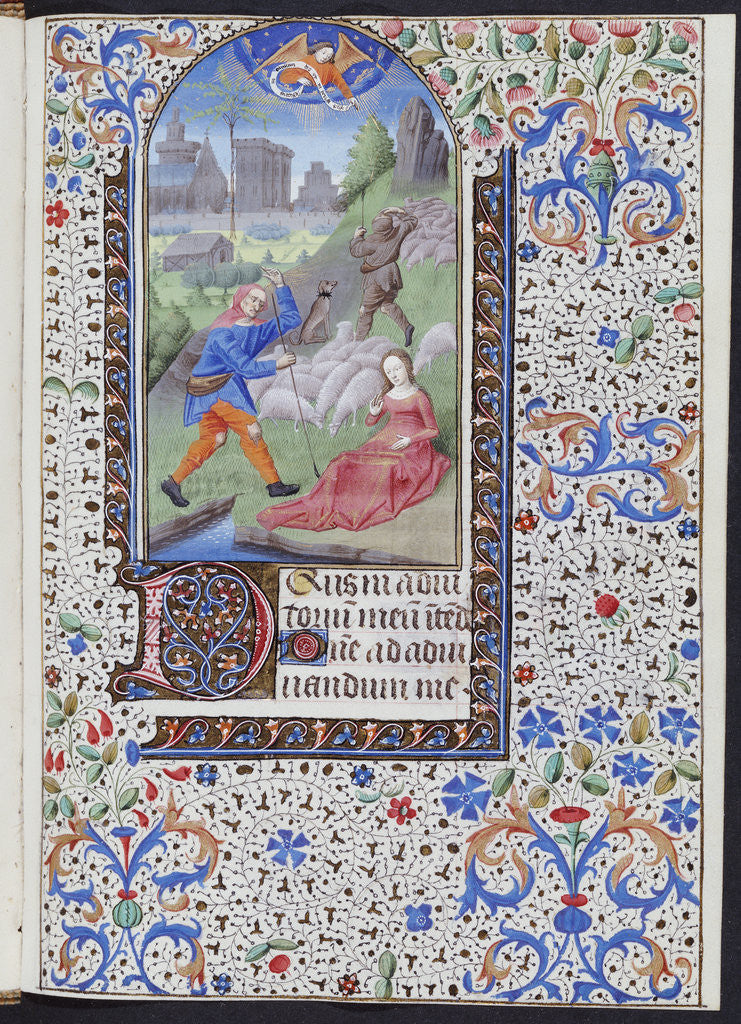 Deus in adiu
toriu meu inted
Dne ad adiu
uandum me.